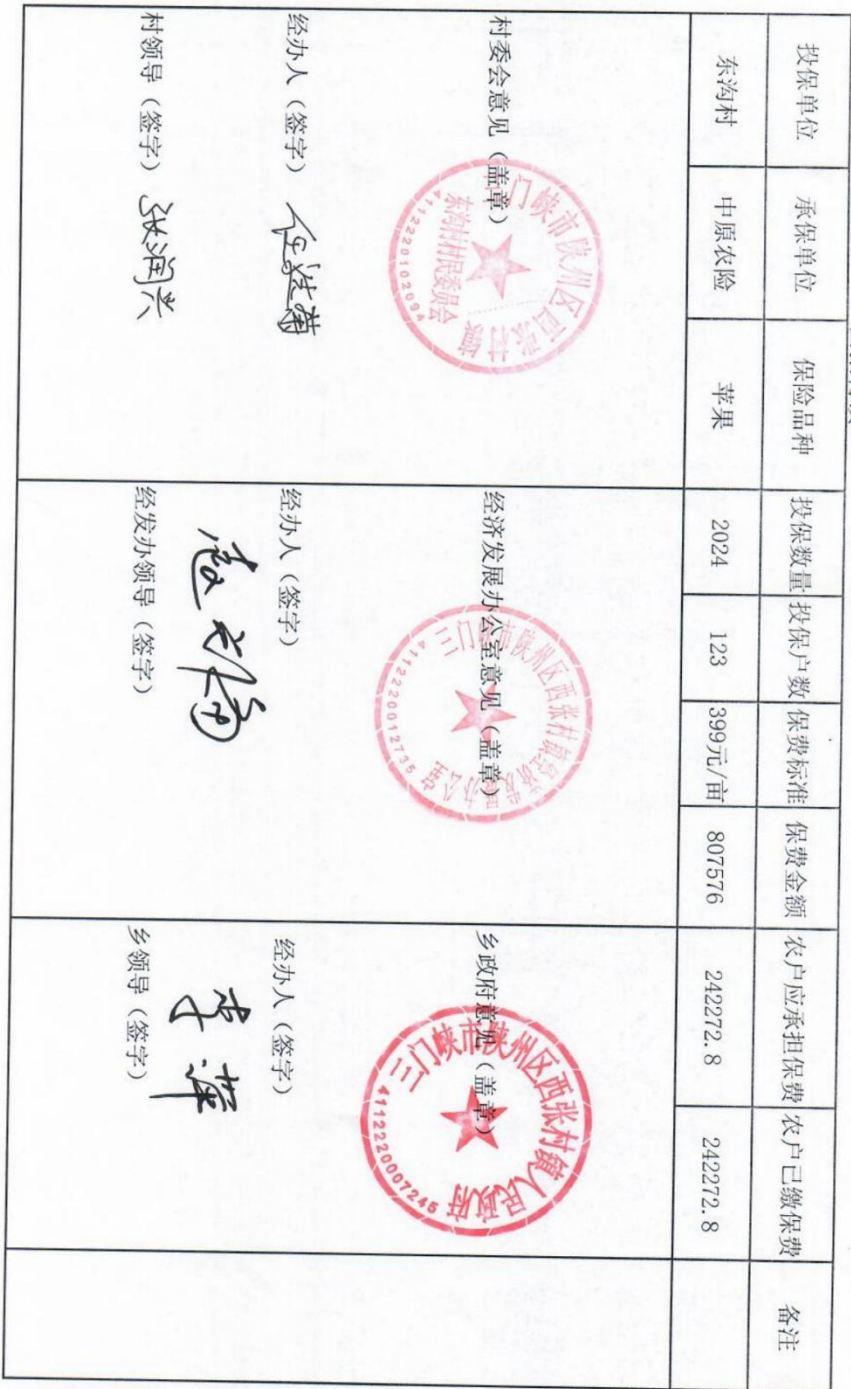 投保单位 承保单位 保险品种 投保数量 投保户数 保费标准 保费金额 农户应承担保费 农户已缴保费 备注
东沟村 中原农险 苹果 2024 123 399元/亩 807576 242272.8 242272.8
村委会意见（盖章）
三门峡市陕州区西张村镇
东沟村村民委员会
4112220102094
经办人（签字）
村领导（签字） 张润兴
经济发展办公室意见（盖章）
三门峡市陕州区西张村镇经济发展办公室
4112220012735
经办人（签字）
经发办领导（签字）
乡政府意见（盖章）
三门峡市陕州区西张村镇人民政府
4112220007245
经办人（签字）
乡领导（签字）